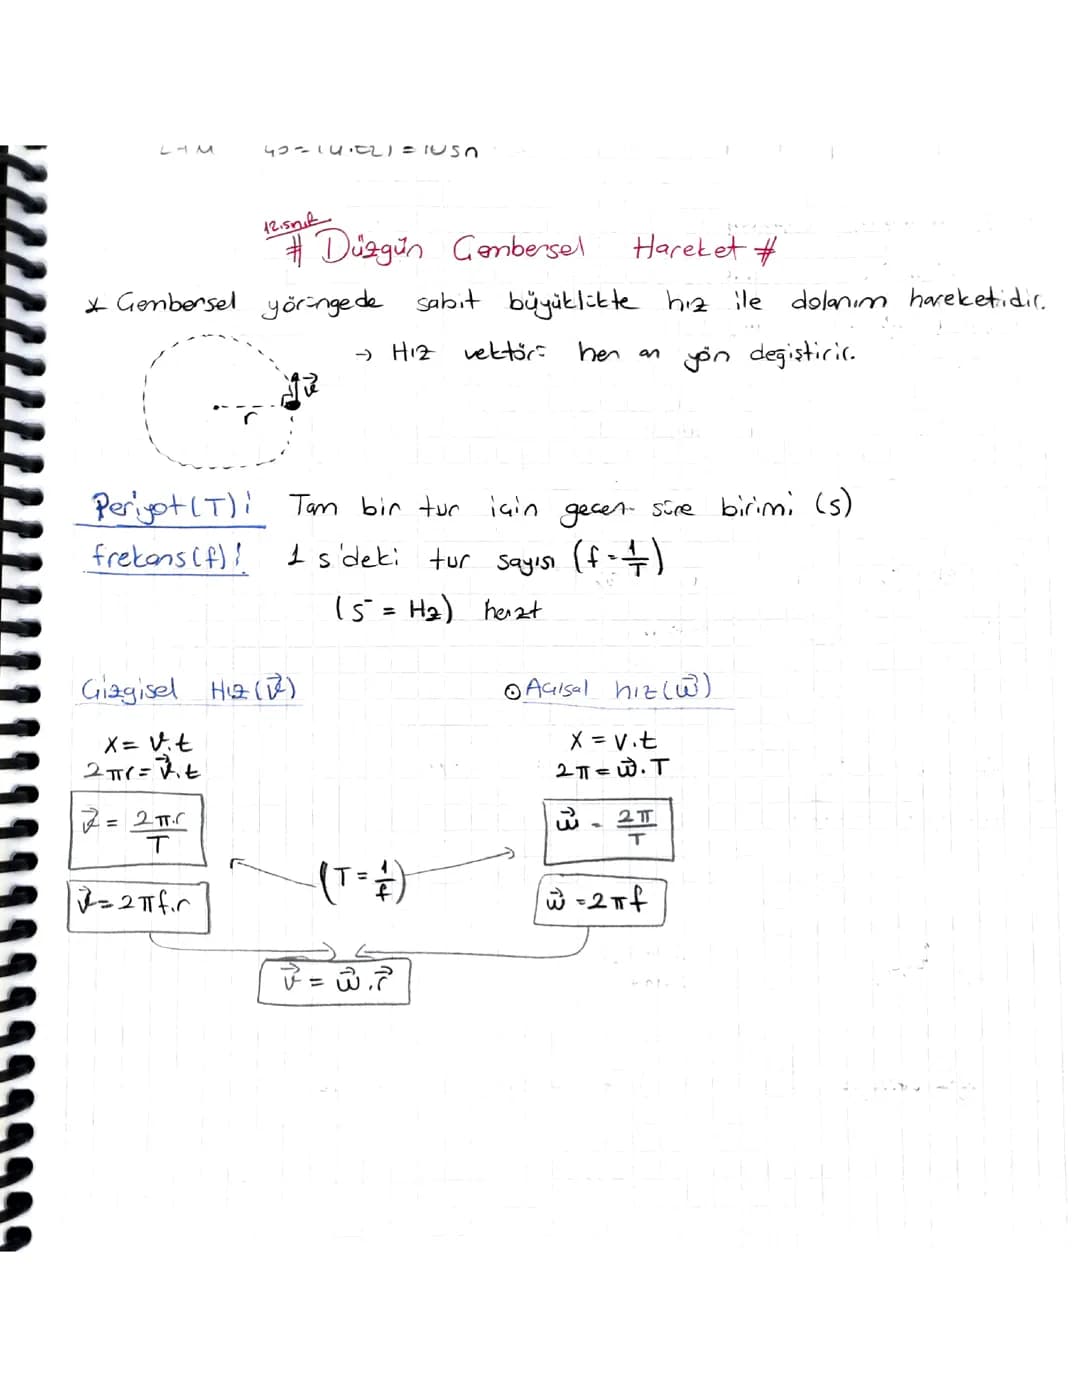 12.sınıf
# Düzgün Çembersel Hareket #
* Çembersel yörüngede sabit büyüklükte hız ile dolanım hareketidir.
→ Hız vektörü her an yön değiştirir.
v⃗
r
Periyot(T): Tam bir tur için geçen süre birimi (s)
frekans(f): 1 s'deki tur sayısı (f=1/T)
(s⁻ = Hz) hertz
Çizgisel Hız(v⃗)
x = v.t
2πr = v⃗.t
v⃗ = 2π.r/T
v⃗ = 2πf.r
⊙ Açısal hız(w⃗)
x = v.t
2π = w⃗.T
w⃗ = 2π/T
w⃗ = 2πf
(T = 1/f)
v⃗ = w⃗.r⃗